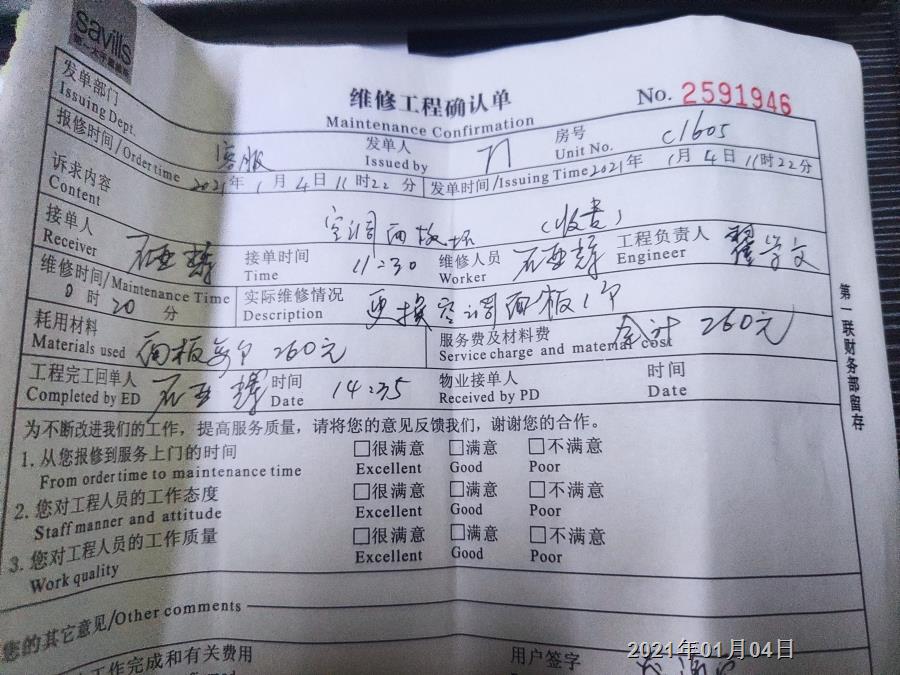 savills
第一太平戴维斯
维修工程确认单
Maintenance Confirmation
No. 2591946
发单部门 客服 发单人 房号 C1605
Issuing Dept. Issued by Unit No.
报修时间/Ordertime 2021年1月4日11时22分 发单时间/Issuing Time 2021年1月4日11时22分
诉求内容 空调面板坏 (收费)
Content
接单人 石亚辉 接单时间 11:30 维修人员 石亚辉 工程负责人 翟学文
Receiver Time Worker Engineer
维修时间/Maintenance Time 实际维修情况 更换空调面板1个
0时20分 Description
耗用材料 面板每个260元 服务费及材料费 合计260元
Materials used Service charge and material cost
工程完工回单人 石亚辉 时间 14:35 物业接单人 时间
Completed by ED Date Received by PD Date
为不断改进我们的工作，提高服务质量，请将您的意见反馈我们，谢谢您的合作。
1. 从您报修到服务上门的时间 □很满意 □满意 □不满意
From ordertime to maintenance time Excellent Good Poor
2. 您对工程人员的工作态度 □很满意 □满意 □不满意
Staff manner and attitude Excellent Good Poor
3. 您对工程人员的工作质量 □很满意 □满意 □不满意
Work quality Excellent Good Poor
您的其它意见/Other comments
工作完成和有关费用 用户签字
第一联财务部留存
2021年01月04日